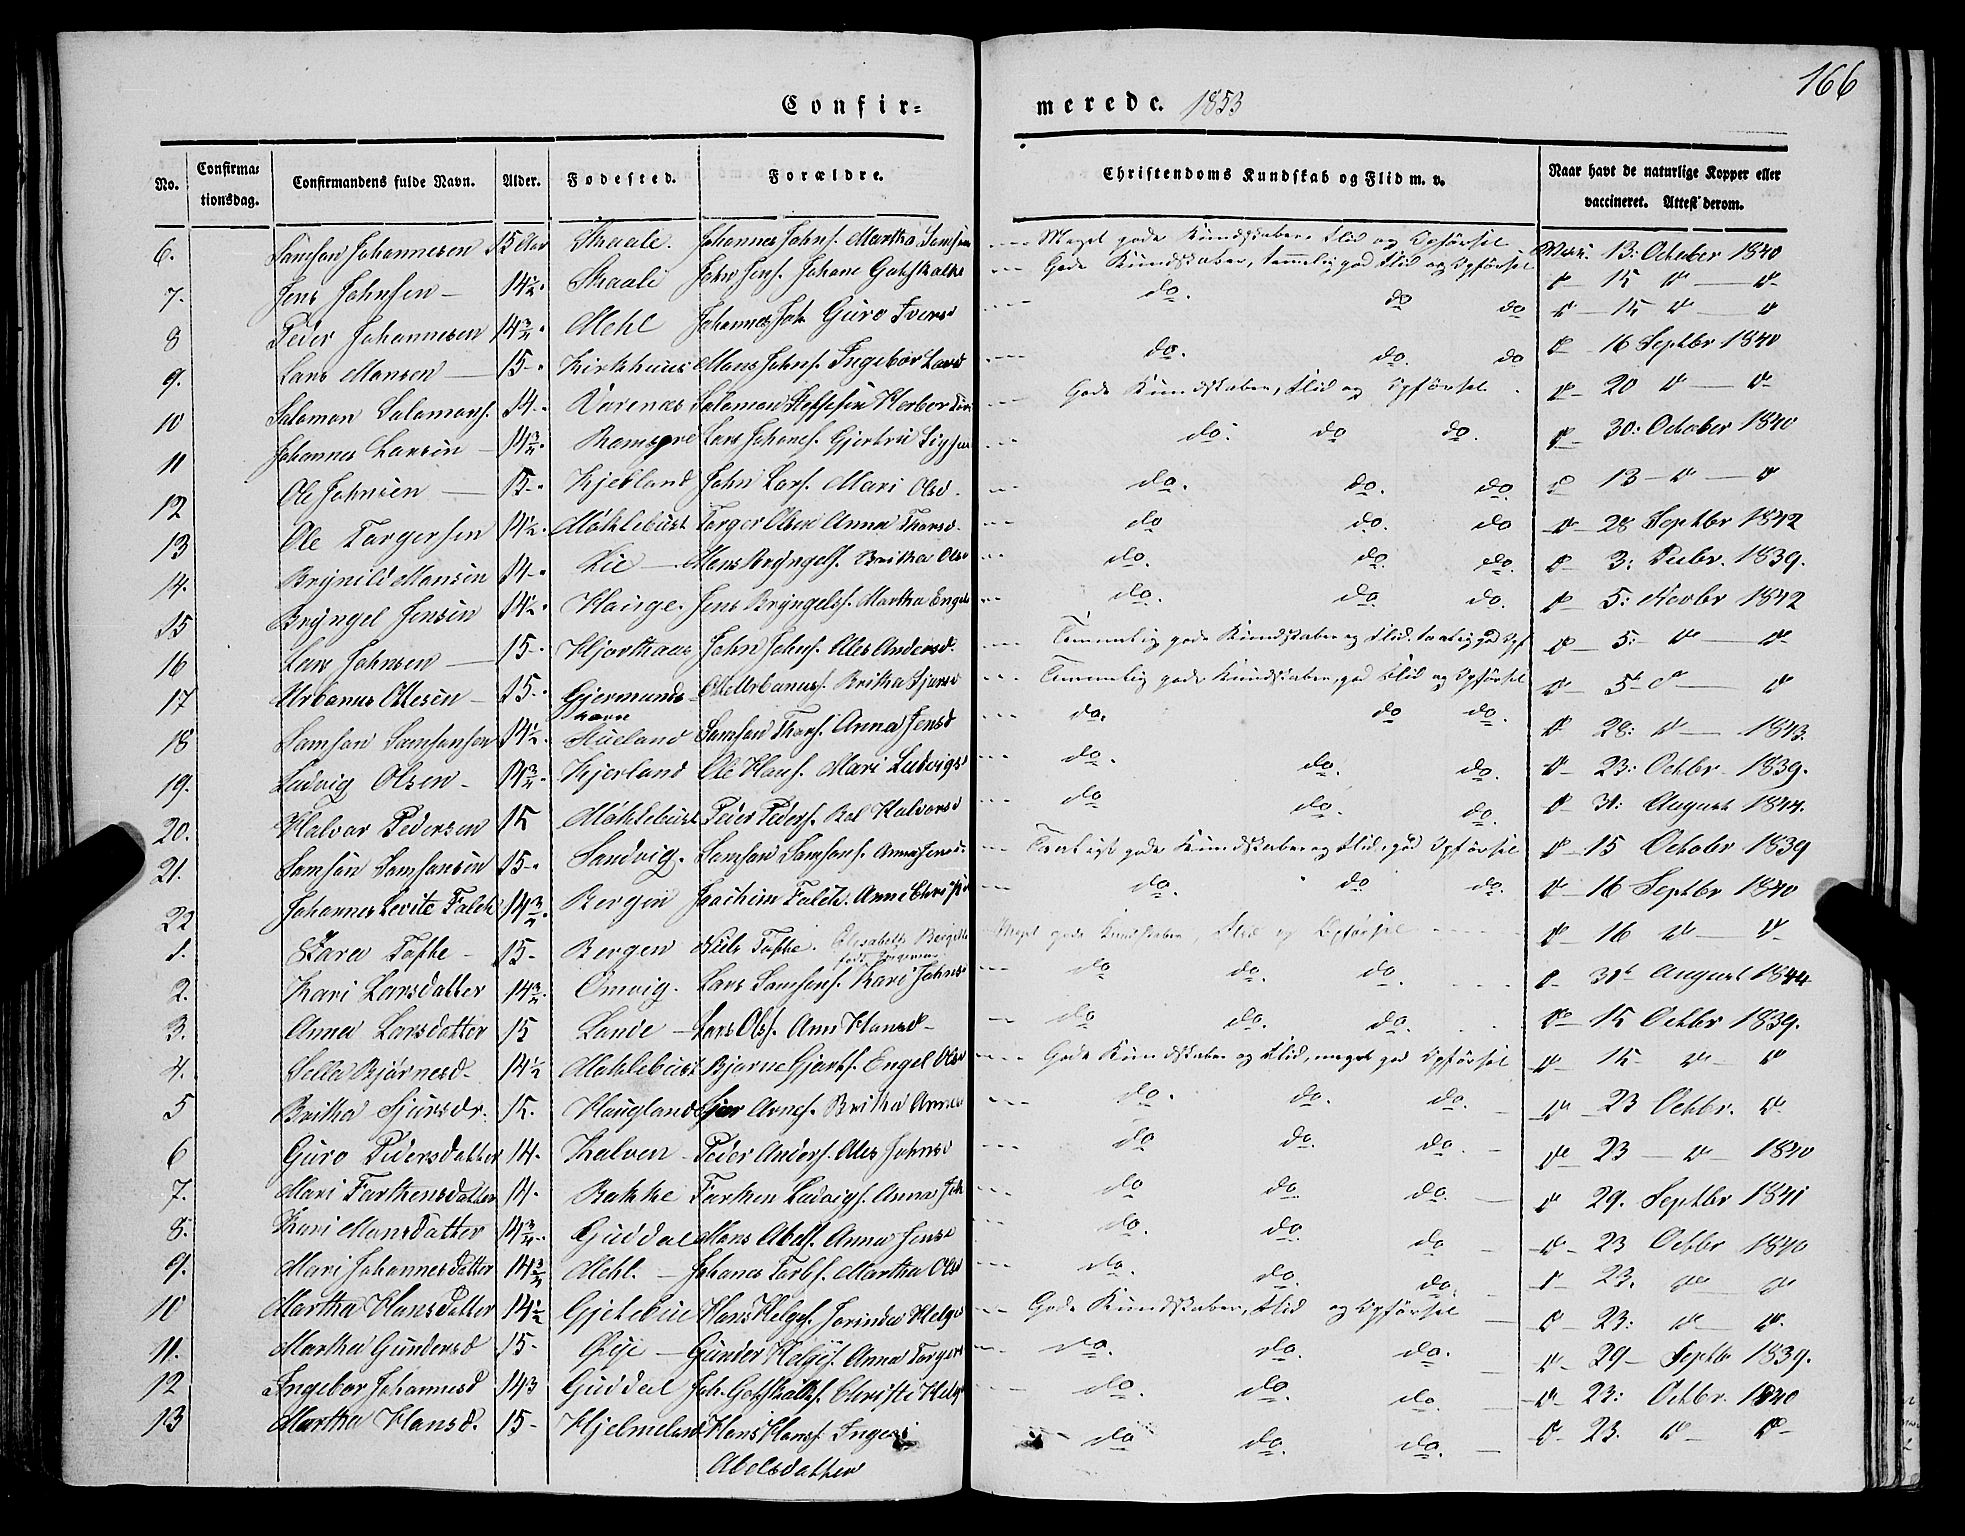 166
Confir- merede. 1853
No. Confirmationsdag. Confirmandens fulde Navn. Alder. Fødested. Forældre. Christendoms Kundskab og Flid m. v. Naar havt de naturlige Kopper eller vaccineret. Attest derom.
6. Samson Johannesen 15 Aar Skaale. Johannes Johns. Martha Samsons Meget gode Kundskaber Flid og Opførsel 13: October 1840
7. Jens Johnsen 14½ Skaale John Jens. Johane Gotskalks Gode Kundskaber, temmelig god Flid og Opførsel 15 do do
8 Peder Johannesen 14¾ Mehl Johannes Joh. Guro Iversd do. do do 15 do do
9. Lars Monsen 15 Kirkhuus Mons Johns. Ingebor Larsd do. do. do 16 Septbr 1840
10 Salamon Salamons. 14 Salamon Herbor Gode Kundskaber, Flid og Opførsel 20 do do
11 Johannes Larsen 14¾ Lars Johans. Gjertru do. do do. 30: October 1840
12 Ole Johnsen 15 John Lars. Mari Olsd. do. do. do 13 do do
13 Ole Torgersen 14½ Møhlebust Torger Olsen Anna do do. do 28 Septbr 1842
14. Brynild Monsen 14 Lie Mons Bryngels. Britha Olsd do. do do. 3: Decbr. 1839.
15 Bryngel Jensen 14½ Hauge. Jens Bryngels. Martha Engels do. do do. 5: Novbr 1842
16 Lars Johnsen 15 Hjorthaus John Johns. Ales Andersd. Temmelig gode Kundskaber og Flid 5: do do
17 Urbanus Ottesen 15 Gjermunds- havn Otte Urbanus. Britha Sjursd Temmelig gode Kundskaber, god Flid og Opførsel 5 do do
18 Samson Samsonsen 14½ Hueland Samson Anna Jensd do. do do. 28: do 1843.
19. Ludvig Olsen 14¾ Kjerland Ole Hans. Mari Ludvigsd do. do. do. 23: Octbr. 1839.
20. Halvor Pedersen 15 Møhlebust Peder Peders. Halvorsd do do. do. 31: August 1844.
21. Samson Samsonsen 15 Sandvig. Samson Samsons. Anna gode Kundskaber og Flid, god Opførsel 15 Octobr 1839
22 Johannes Levite Falck 14¾ Bergen Joachim Falck. Anne do. do do. 16 Septbr 1840
1. Zara 15 Bergen Niels Elisabeth Meget gode Kundskaber, Flid og Opførsel 16 do do
2. Kari Larsdatter 14¾ Omvig. Lars Samsons. Kari Johnsd do do. do. 31t August 1844
3. Anna Larsdatter 15 Lande Lars Ols. Ann Hansd do do. do. 15 Octbr 1839.
4. Sella Bjørnesd. 14½ Møhlebust Bjørne Engel Olsd Gode Kundskaber og Flid, meget god Opførsel 15 do do
5 Britha Sjursdr. 15. Haugland Sjur Arnes. Britha do. do. do. 23 Octbr. do
6 Guro Pedersdatter 14. Kalven Peder Anders. Ales Johnsd do do. do. 23 do 1840
7. Mari Torkensdatter 14. Bakke Torken Ludvigs. Anna Joh do do. do. 29. Septbr 1841
8. Kari Monsdatter 14¾ Guddal Mons Abels. Anna Jensd do. do. do 23 Octbr 1840
9. Mari Johannesdatter 14¾ Mehl. Johanes Torb. Martha Olsd do. do. do. 23. do do
10 Martha Hansdatter 14½ Gjetebue Hans Helges. Jorinda Helge Gode Kundskaber, Flid og Opførsel 23: do do
11. Martha Gundersd 15 Øije Gunder Helges. Anna Torgers do. do. do. 29 Septb 1839.
12 Ingebor Johannesd 14¾ Guddal Joh. Gotskalks. Christi Helge do do. do. 23: Octbr. 1840
13 Martha Hansd. 15 Hjelmeland Hans Hans. Inger Abelsdatter do do. do. 23. do do